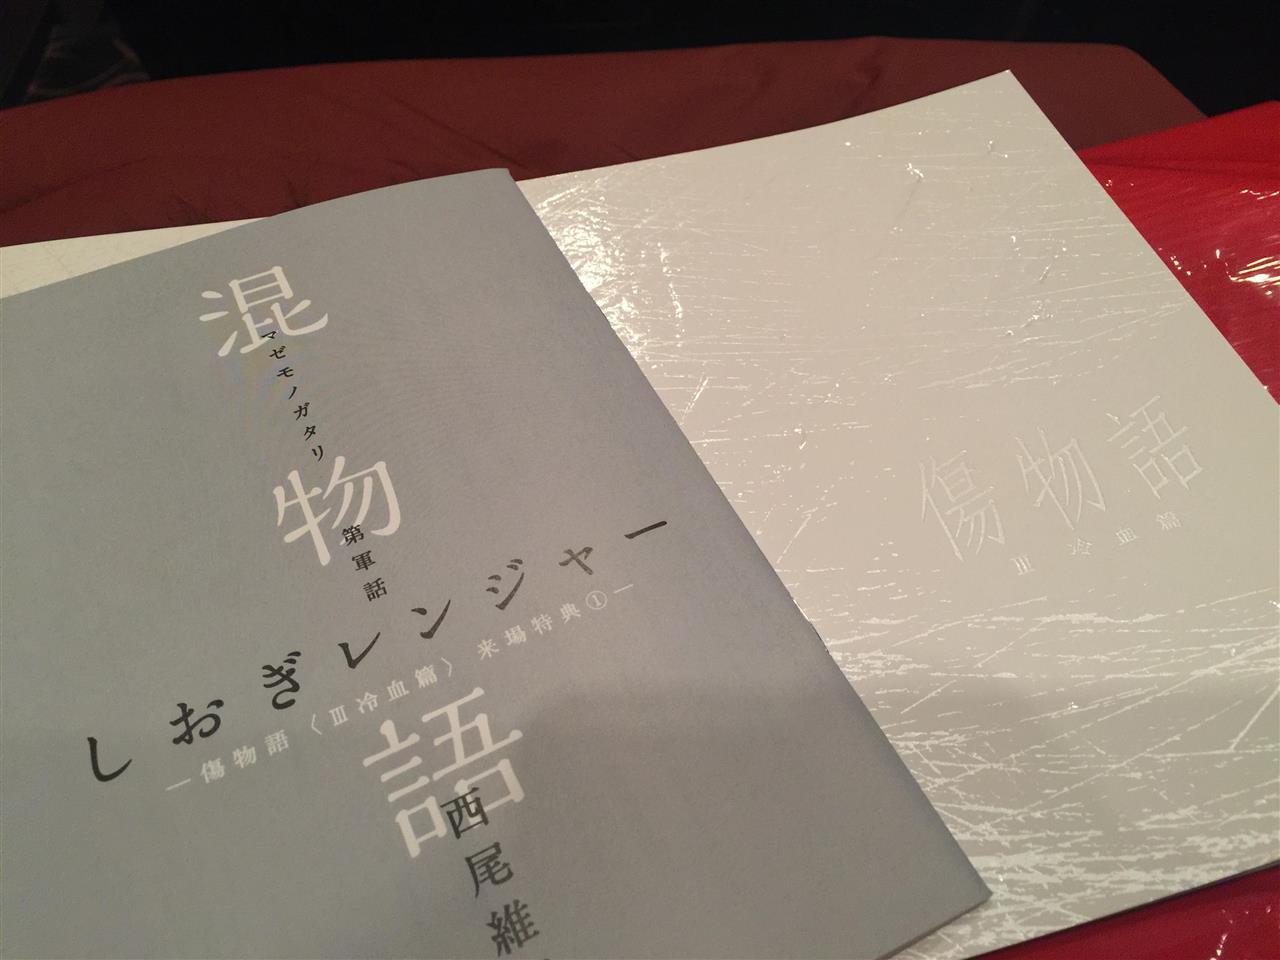 混物語
マゼモノガタリ
第軍話
しおぎレンジャー
―傷物語〈Ⅲ冷血篇〉来場特典①―
西尾維
傷物語
Ⅲ冷血篇